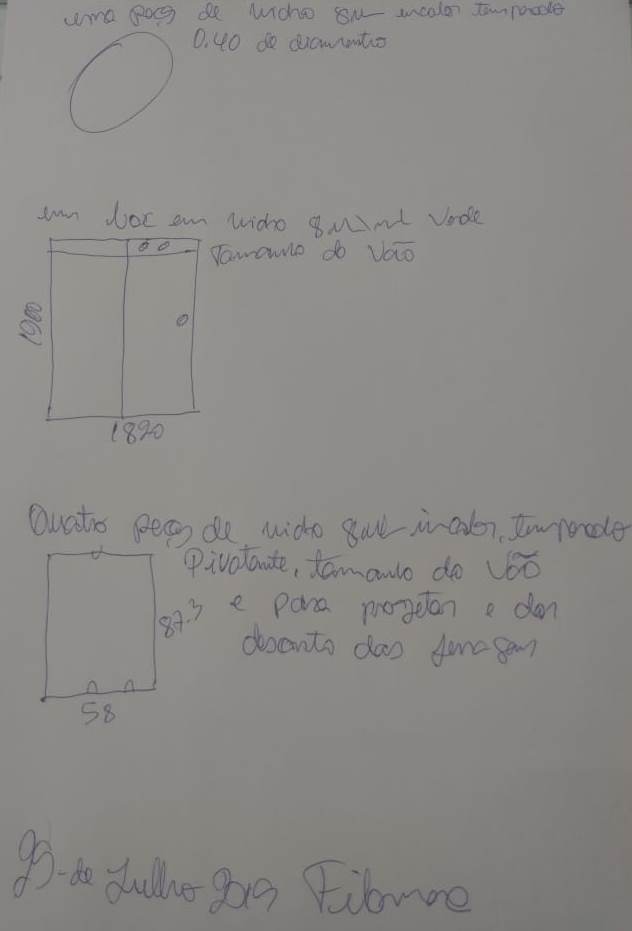 uma peça de vidro 8m incalor temperado
0.40 de diamentro
um box em vidro 8m verde
Tamanho do Vão
1900
1820
Quatro peças de vidro 8m incalor, temperado
Pivotante, tamanho do Vão
87.3 e para projetar e dar
desconto das ferragem
58
25-de Julho 2019